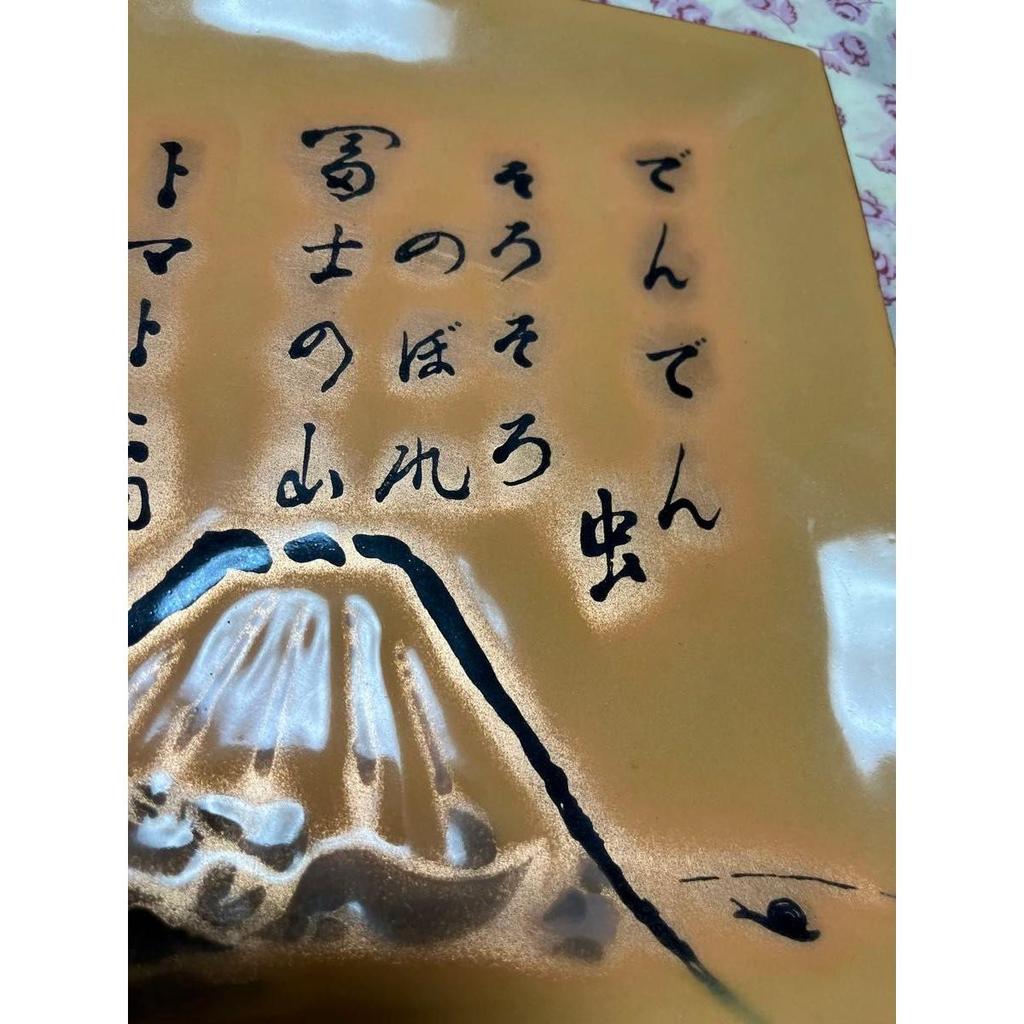 でんでん虫
そろそろ
のぼれ
冨士の山
トマト